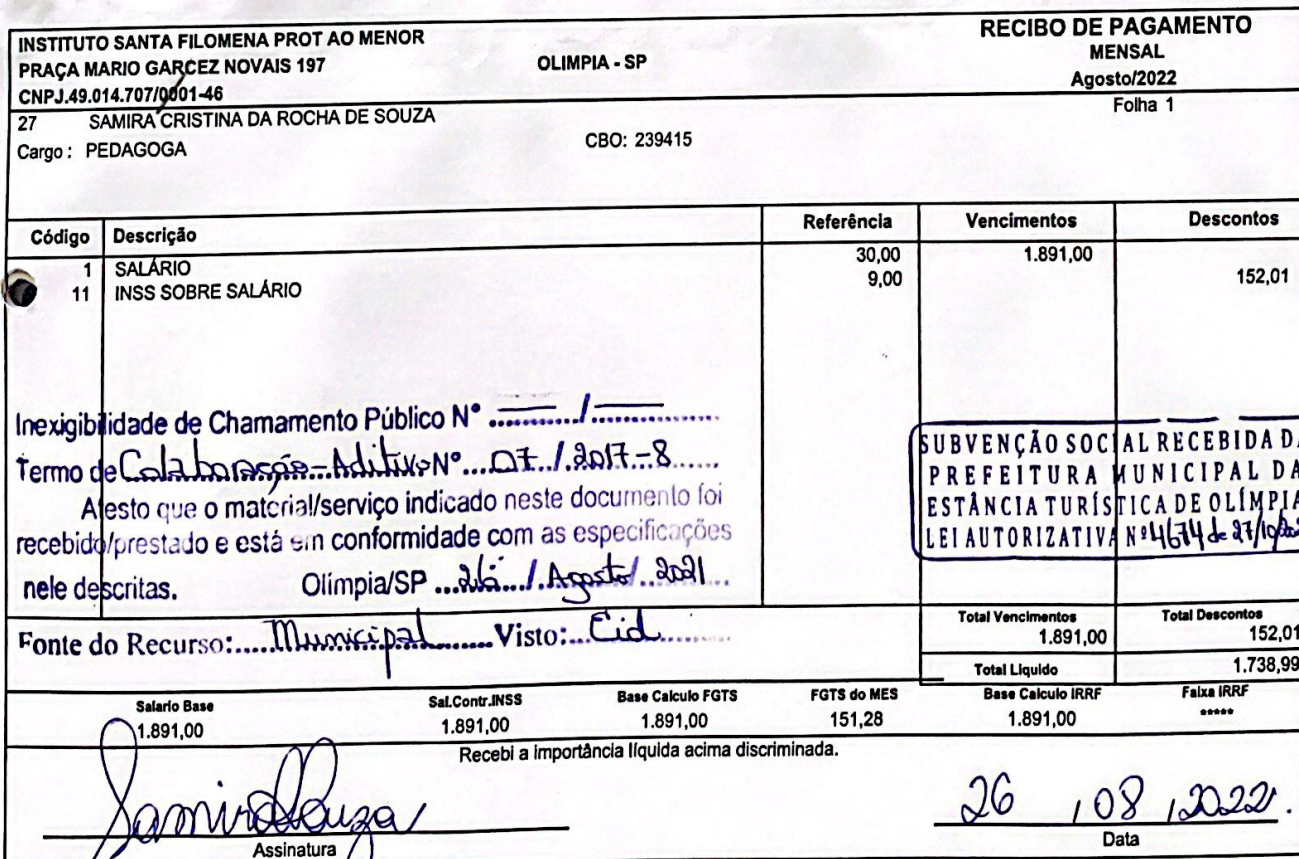 INSTITUTO SANTA FILOMENA PROT AO MENOR
PRAÇA MARIO GARCEZ NOVAIS 197
OLIMPIA - SP
CNPJ.49.014.707/0001-46
RECIBO DE PAGAMENTO
MENSAL
Agosto/2022
Folha 1
27 SAMIRA CRISTINA DA ROCHA DE SOUZA
Cargo : PEDAGOGA CBO: 239415
Código Descrição Referência Vencimentos Descontos
1 SALÁRIO 30,00 1.891,00
11 INSS SOBRE SALÁRIO 9,00 152,01
Inexigibilidade de Chamamento Público N° — / —
Termo de Colaboração-Aditivo N° 07 / 2017-8
Atesto que o material/serviço indicado neste documento foi
recebido/prestado e está em conformidade com as especificações
nele descritas. Olímpia/SP 26 / Agosto / 2021
Fonte do Recurso: Municipal Visto: Cid
SUBVENÇÃO SOCIAL RECEBIDA DA
PREFEITURA MUNICIPAL DA
ESTÂNCIA TURÍSTICA DE OLÍMPIA
LEI AUTORIZATIVA Nº 4674 de 27/10/
Total Vencimentos Total Descontos
1.891,00 152,01
Total Liquido 1.738,99
Salario Base Sal.Contr.INSS Base Calculo FGTS FGTS do MES Base Calculo IRRF Faixa IRRF
1.891,00 1.891,00 1.891,00 151,28 1.891,00 *****
Recebi a importância líquida acima discriminada.
Samira Souza 26 / 08 / 2022.
Assinatura Data